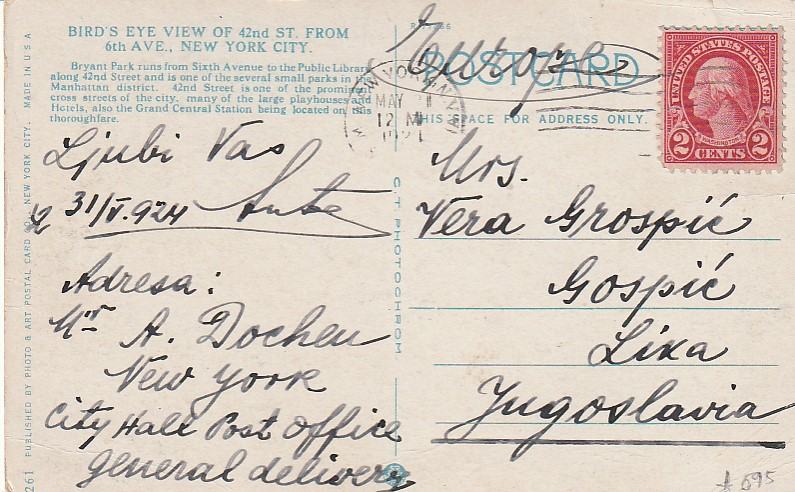 BIRD'S EYE VIEW OF 42nd ST. FROM
6th AVE., NEW YORK CITY.
Bryant Park runs from Sixth Avenue to the Public Library
along 42nd Street and is one of the several small parks in the
Manhattan district. 42nd Street is one of the prominent
cross streets of the city, many of the large playhouses and
Hotels, also the Grand Central Station being located on this
thoroughfare.
Ljubi Vas
31/V.924 Ante
Adresa:
Mr A. Dochen
New York
City Hall Post office
general delivery
261 PUBLISHED BY PHOTO & ART POSTAL CARD CO., NEW YORK CITY. MADE IN U.S.A
C.T. PHOTOCHROM
Europe
POSTCARD
NEW YORK
MAY 31
12 M
THIS SPACE FOR ADDRESS ONLY.
UNITED STATES POSTAGE
WASHINGTON
2 CENTS 2
Mrs.
Vera Grospić
Gospić
Lika
Jugoslavia